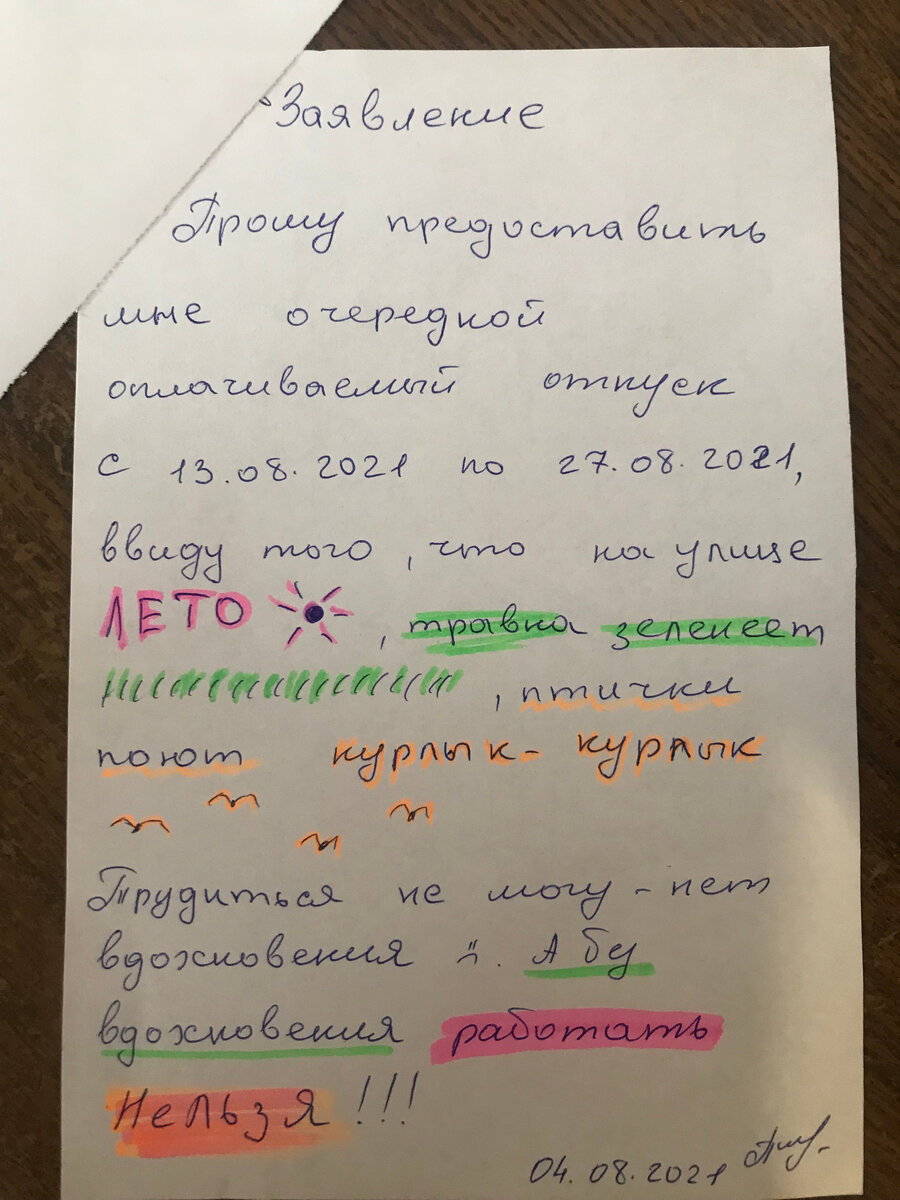 Заявление
Прошу предоставить
мне очередной
оплачиваемый отпуск
с 13.08.2021 по 27.08.2021,
ввиду того, что на улице
ЛЕТО, травка зеленеет
, птички
поют курлык-курлык
Трудиться не могу - нет
вдохновения :(. А бу
вдохновения работать
Нельзя!!!
04.08.2021